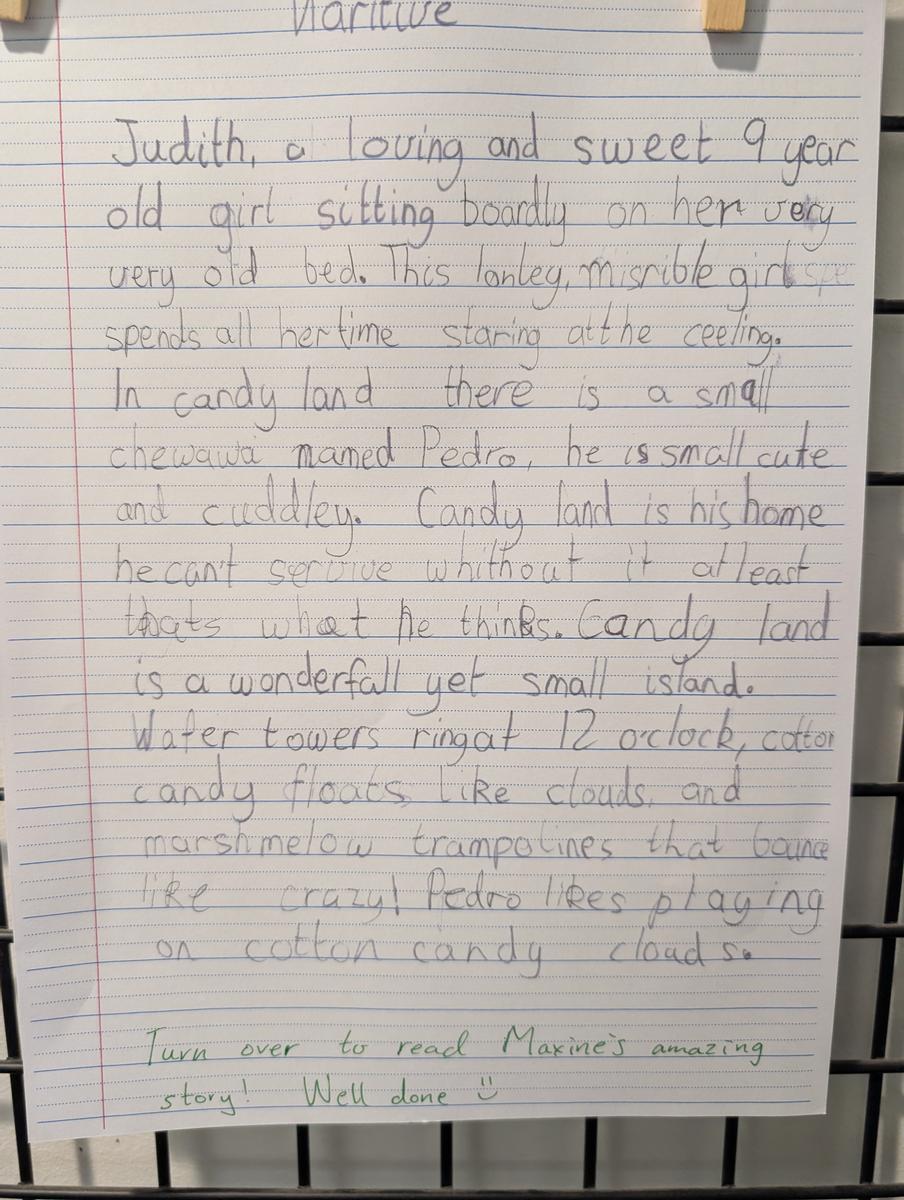 Naritive
Judith, a loving and sweet 9 year
old girl sitting boardly on her very
very old bed. This lonley, misrible girl spe
spends all her time staring at the ceeling.
In candy land there is a small
chewawa named Pedro, he is small cute
and cuddley. Candy land is his home
he can't servive whithout it at least
thats what he thinks. Candy land
is a wonderfall yet small island.
Wafer towers ring at 12 o'clock, cotton
candy floats like clouds, and
marshmelow trampolines that bounce
like crazy! Pedro likes playing
on cotton candy clouds.
Turn over to read Maxine's amazing
story! Well done